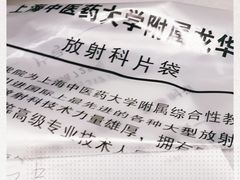 上海中医药大学附属龙华
放射科片袋
院为上海中医药大学附属综合性教
引进国际上最先进的各种大型放射
放射科技术力量雄厚，拥有
高级专业技术人